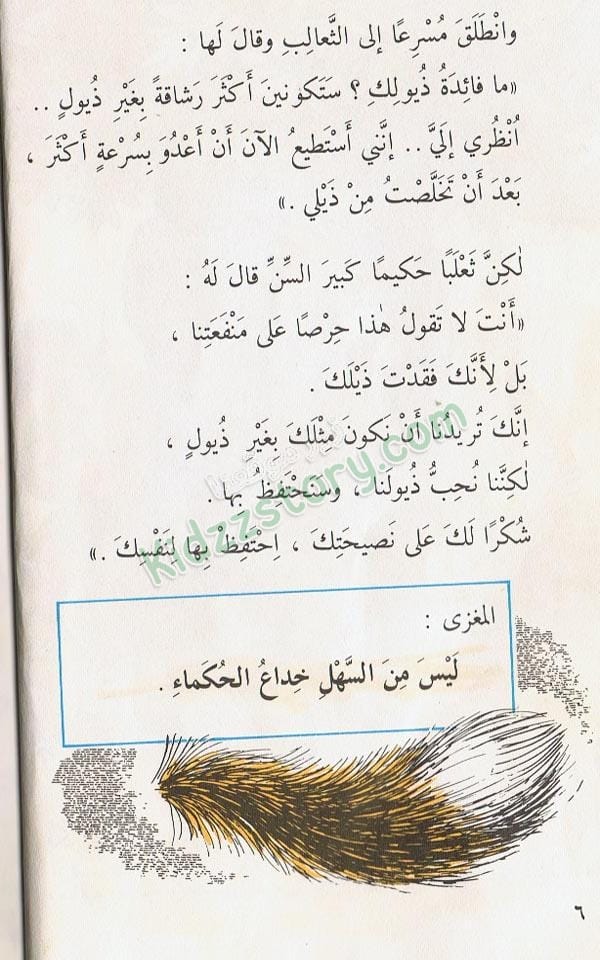 وانْطَلَقَ مُسْرِعًا إلى الثَّعالِبِ وقالَ لَها :
«ما فائِدَةُ ذُيولِكِ ؟ سَتَكونينَ أَكْثَرَ رَشاقَةً بِغَيْرِ ذُيولٍ ..
اُنْظُري إلَيَّ .. إنَّني أَسْتَطيعُ الآنَ أَنْ أَعْدُوَ بِسُرْعَةٍ أَكْثَرَ ،
بَعْدَ أَنْ تَخَلَّصْتُ مِنْ ذَيْلي .»
لٰكِنَّ ثَعْلَبًا حَكيمًا كَبيرَ السِّنِّ قالَ لَهُ :
«أَنْتَ لا تَقولُ هٰذا حِرْصًا عَلى مَنْفَعَتِنا ،
بَلْ لِأَنَّكَ فَقَدْتَ ذَيْلَكَ .
إنَّكَ تُريدُنا أَنْ نَكونَ مِثْلَكَ بِغَيْرِ ذُيولٍ ،
لٰكِنَّنا نُحِبُّ ذُيولَنا ، وسَنَحْتَفِظُ بِها .
شُكْرًا لَكَ عَلى نَصيحَتِكَ ، اِحْتَفِظْ بِها لِنَفْسِكَ .»
kidzzstory.com
المغزى :
لَيْسَ مِنَ السَّهْلِ خِداعُ الحُكَماءِ .
٦